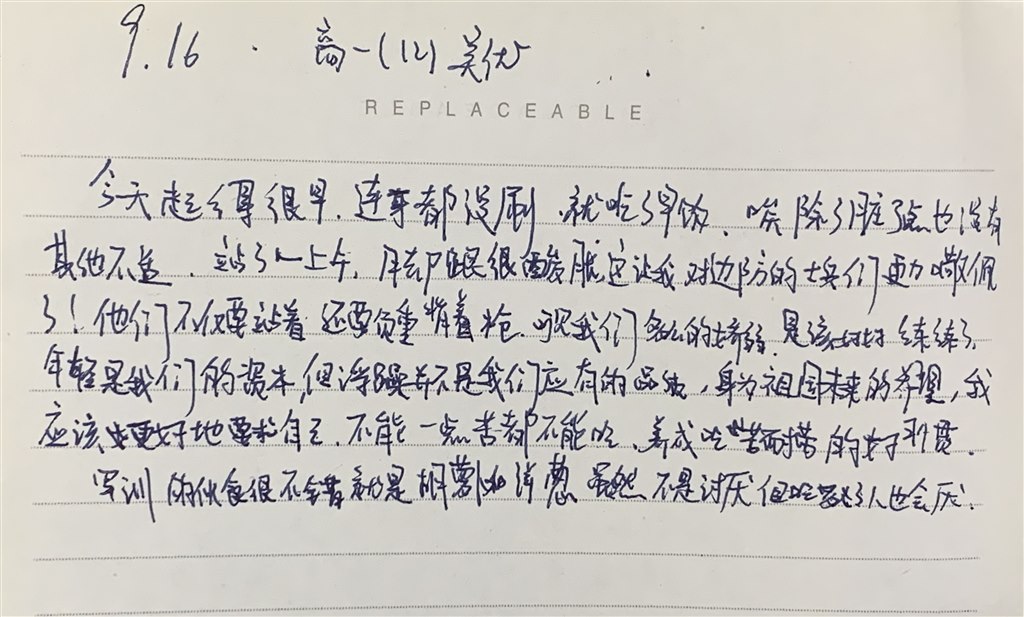 9.16 · 高一(12) 吴优
REPLACEABLE
今天起得很早，连牙都没刷，就吃了早饭，唉除了脏了点也没有
其他不适，站了一上午，脚很酸胀，这让我对边防的士兵们更加敬佩
了！他们不仅要站着还要负重背着枪，我们的娇弱，是该好好练练了，
年轻是我们的资本，但浮躁并不是我们应有的品质，身为祖国未来的希望，我
应该更好地要求自己，不能一点苦都不能吃，养成吃苦耐劳的好习惯。
军训的伙食很不错就是胡萝卜和洋葱虽然不是讨厌但吃多了人也会厌。